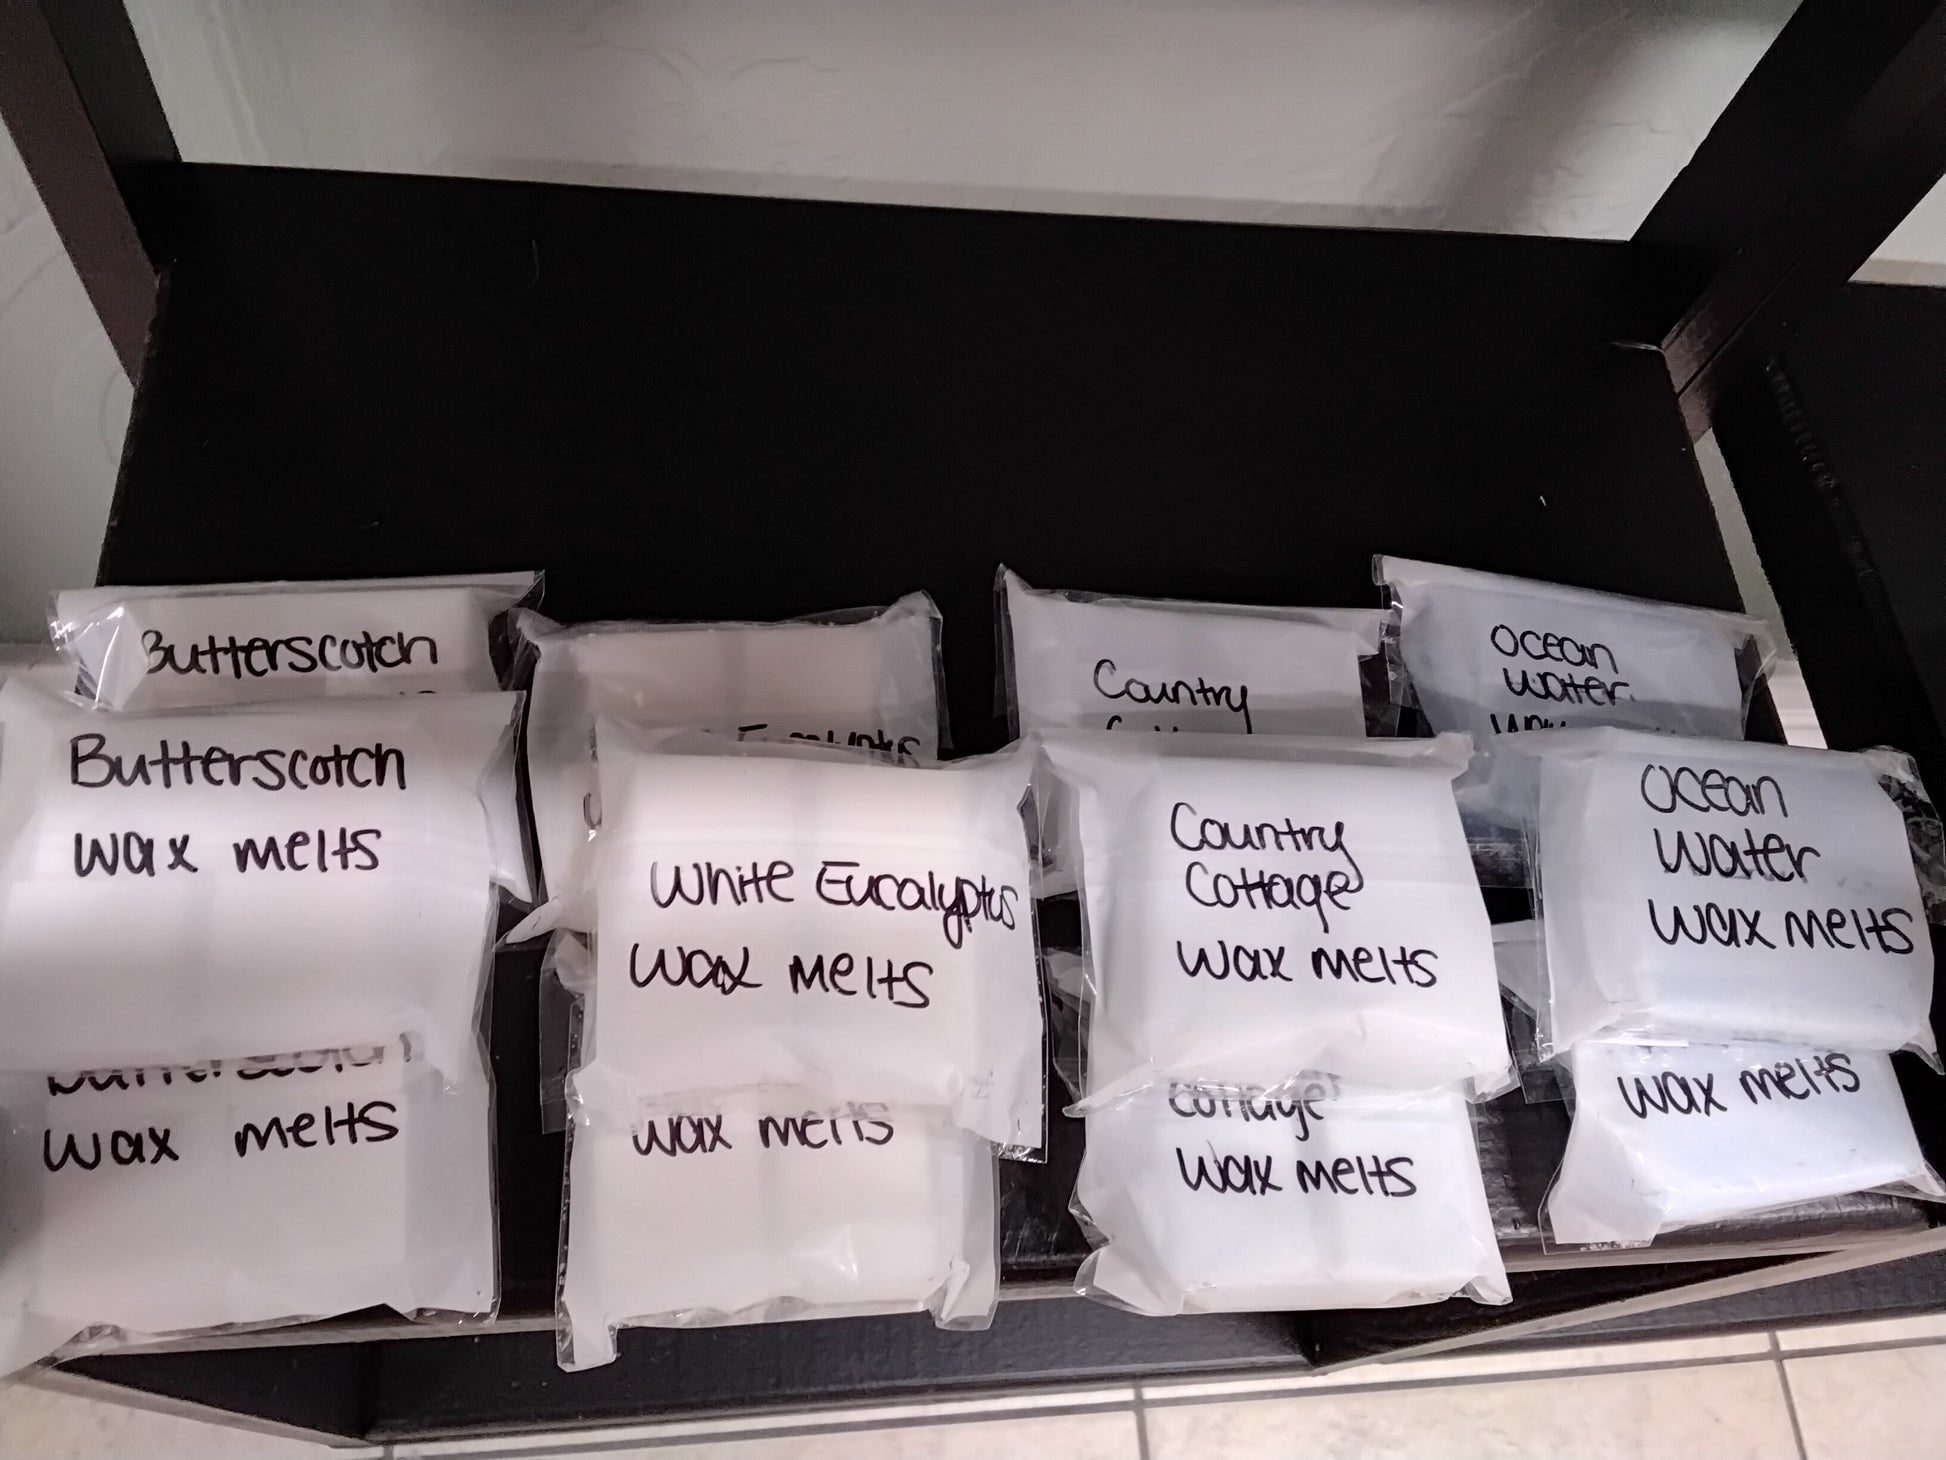 Butterscotch
Butterscotch
wax melts
Butterscotch
wax melts
Eucalyptus
White Eucalyptus
wax melts
wax melts
Country
Country
Cottage
wax melts
Cottage
wax melts
Ocean
Water
Wax
Ocean
Water
wax melts
wax melts